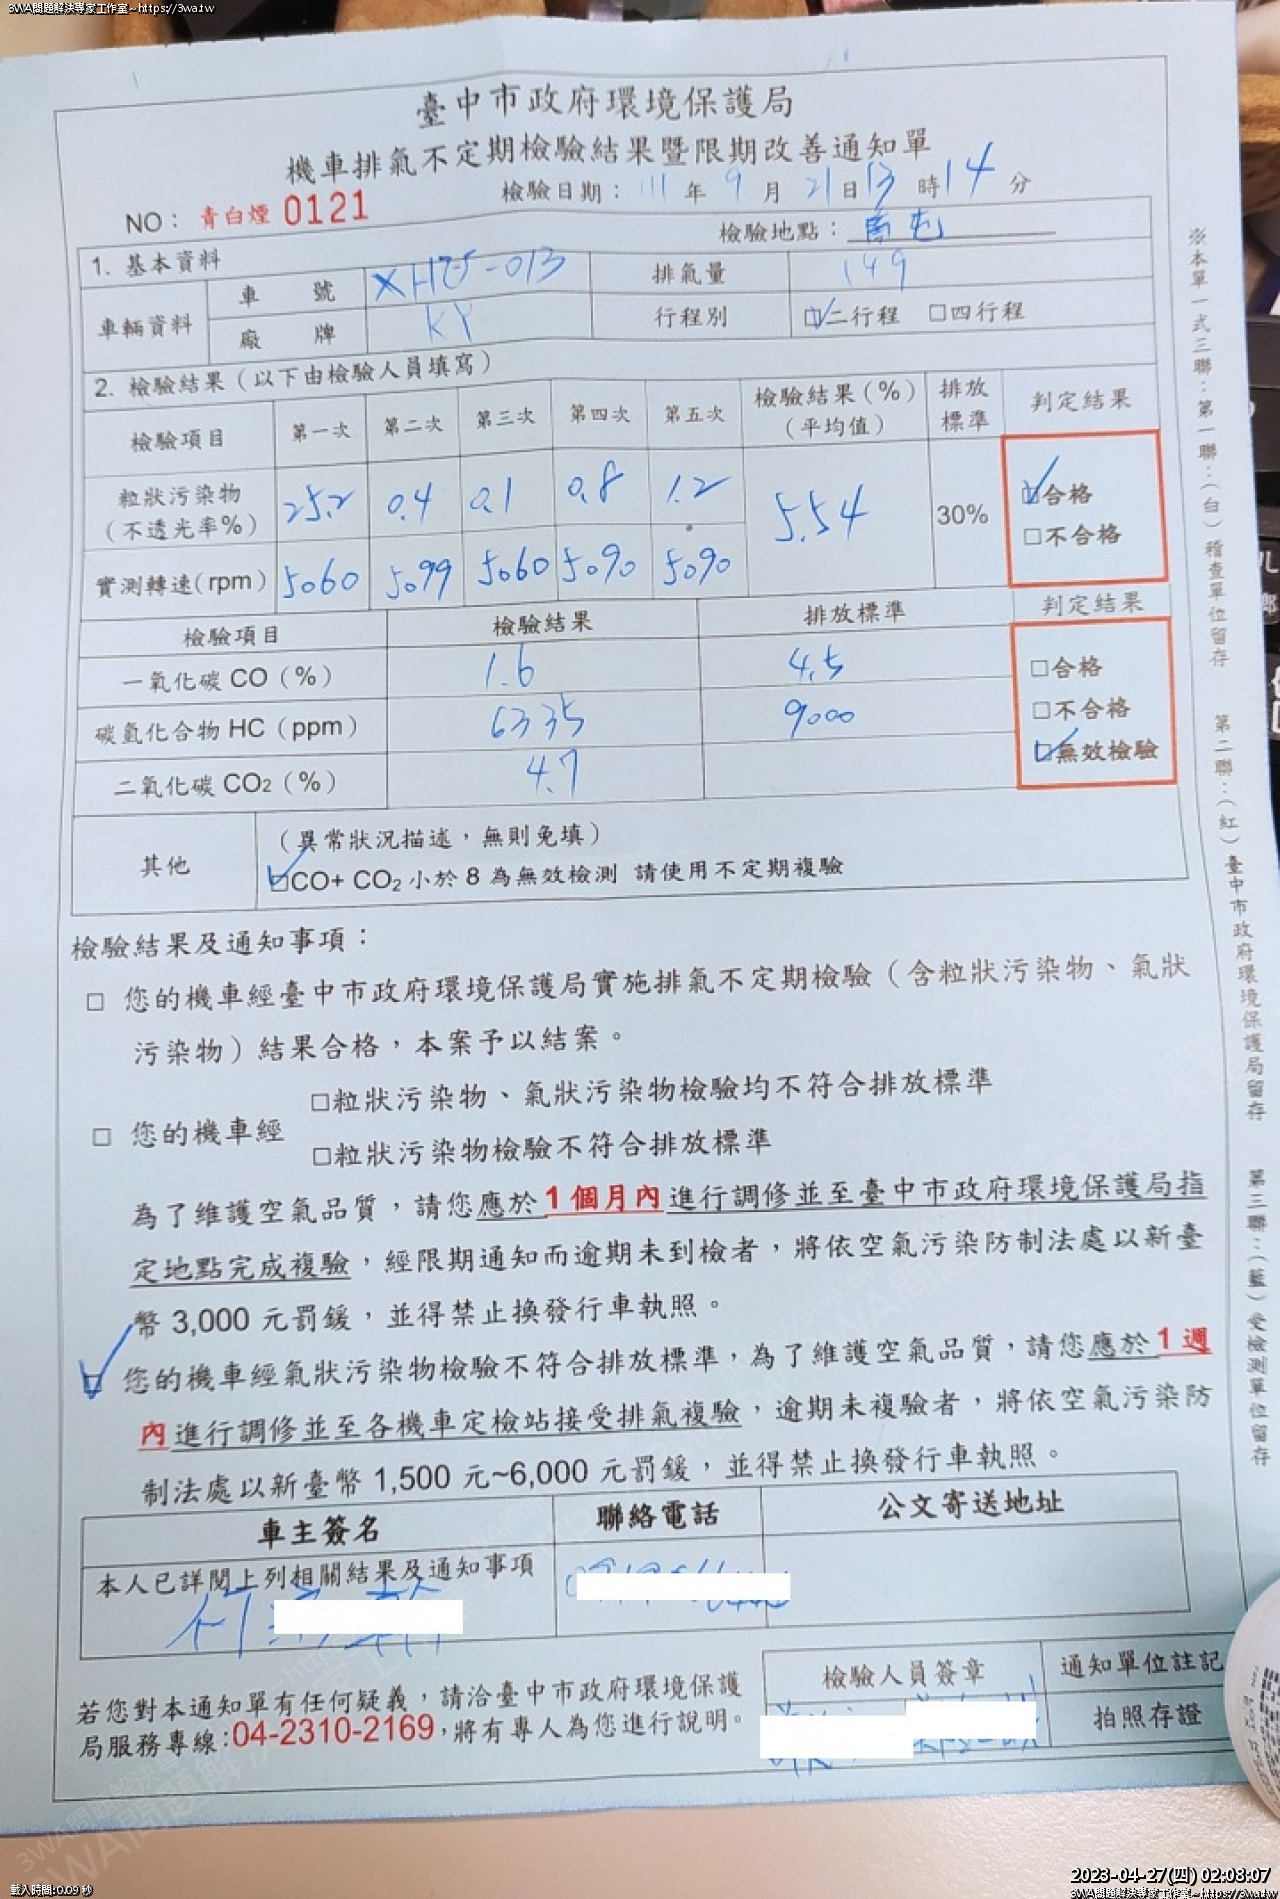 3WA問題解決專家工作室~https://3wa.tw
臺中市政府環境保護局
機車排氣不定期檢驗結果暨限期改善通知單
檢驗日期：111年9月21日13時14分
NO：青白煙 0121
檢驗地點：
1. 基本資料
車輛資料
車 號 排氣量 149
廠 牌 KY 行程別 ☑二行程 □四行程
2. 檢驗結果（以下由檢驗人員填寫）
檢驗項目 第一次 第二次 第三次 第四次 第五次 檢驗結果（%）（平均值） 排放標準 判定結果
粒狀污染物（不透光率%） 25.2 0.4 0.1 0.8 1.2 5.54 30% ☑合格 □不合格
實測轉速(rpm) 5060 5099 5060 5090 5090
檢驗項目 檢驗結果 排放標準 判定結果
一氧化碳 CO（%） 1.6 4.5 □合格
碳氫化合物 HC（ppm） 6335 9000 □不合格
二氧化碳 CO2（%） 4.7 ☑無效檢驗
其他
（異常狀況描述，無則免填）
☑CO+ CO2 小於 8 為無效檢測 請使用不定期複驗
檢驗結果及通知事項：
□ 您的機車經臺中市政府環境保護局實施排氣不定期檢驗（含粒狀污染物、氣狀
污染物）結果合格，本案予以結案。
□粒狀污染物、氣狀污染物檢驗均不符合排放標準
□ 您的機車經
□粒狀污染物檢驗不符合排放標準
為了維護空氣品質，請您應於1個月內進行調修並至臺中市政府環境保護局指
定地點完成複驗，經限期通知而逾期未到檢者，將依空氣污染防制法處以新臺
幣 3,000 元罰鍰，並得禁止換發行車執照。
☑ 您的機車經氣狀污染物檢驗不符合排放標準，為了維護空氣品質，請您應於1週
內進行調修並至各機車定檢站接受排氣複驗，逾期未複驗者，將依空氣污染防
制法處以新臺幣 1,500 元~6,000 元罰鍰，並得禁止換發行車執照。
車主簽名 聯絡電話 公文寄送地址
本人已詳閱上列相關結果及通知事項
若您對本通知單有任何疑義，請洽臺中市政府環境保護
局服務專線:04-2310-2169,將有專人為您進行說明。
檢驗人員簽章 通知單位註記
拍照存證
※本單一式三聯：第一聯：（白）稽查單位留存
第二聯：（紅）臺中市政府環境保護局留存
第三聯：（藍）受檢測單位留存
載入時間:0.09 秒
2023-04-27(四) 02:08:07
3WA問題解決專家工作室~https://3wa.tw